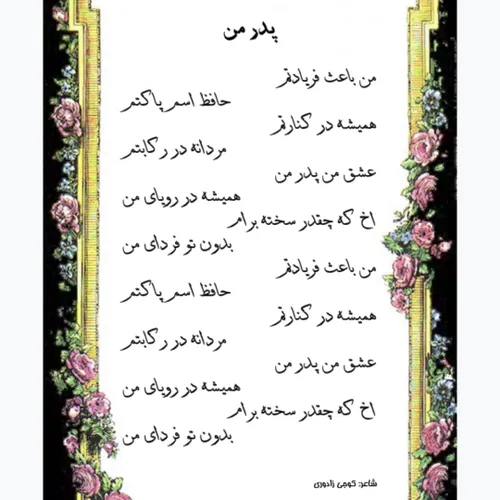 پدر من
من باعث فریادتم
حافظ اسم پاکتم
همیشه در کنارتم
مردانه در رکابتم
عشق من پدر من
همیشه در رویای من
اخ که چقدر سخته برام
بدون تو فردای من
من باعث فریادتم
حافظ اسم پاکتم
همیشه در کنارتم
مردانه در رکابتم
عشق من پدر من
همیشه در رویای من
اخ که چقدر سخته برام
بدون تو فردای من
شاعر: کوجی زادوری